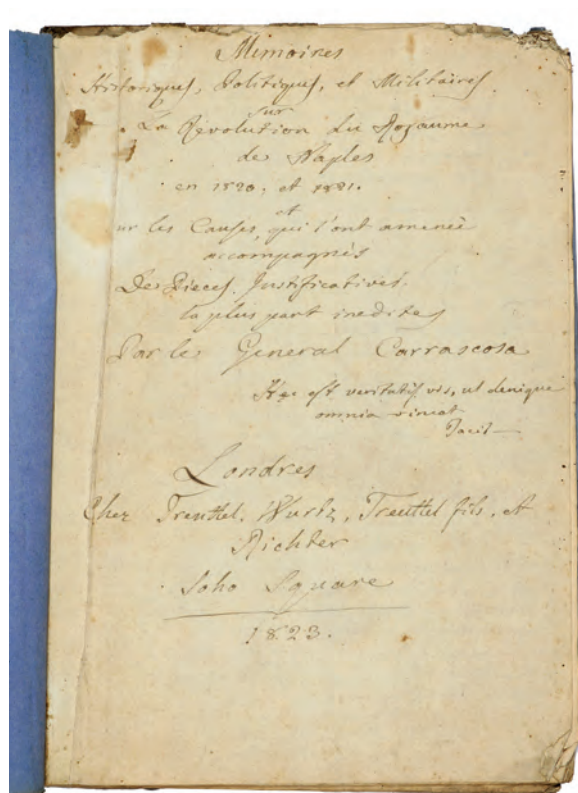 Memoires
Historiques, Politiques, et Militaires
sur
La Révolution du Royaume
de Naples
en 1820, et 1821.
et
sur les Causes, qui l'ont amenée
accompagnés
Des Pieces Justificatives.
la plus part inedites
Par le General Carrascosa
Hæc est veritatis vis, ut denique
omnia vincat
Tacit—
Londres
Chez Treuttel, Wurtz, Treuttel fils, et
Richter
Soho Square
1823.